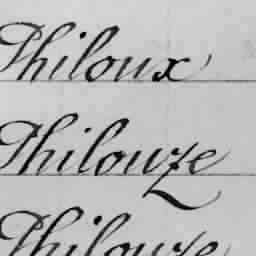 Philoux
Philouze
Philouze